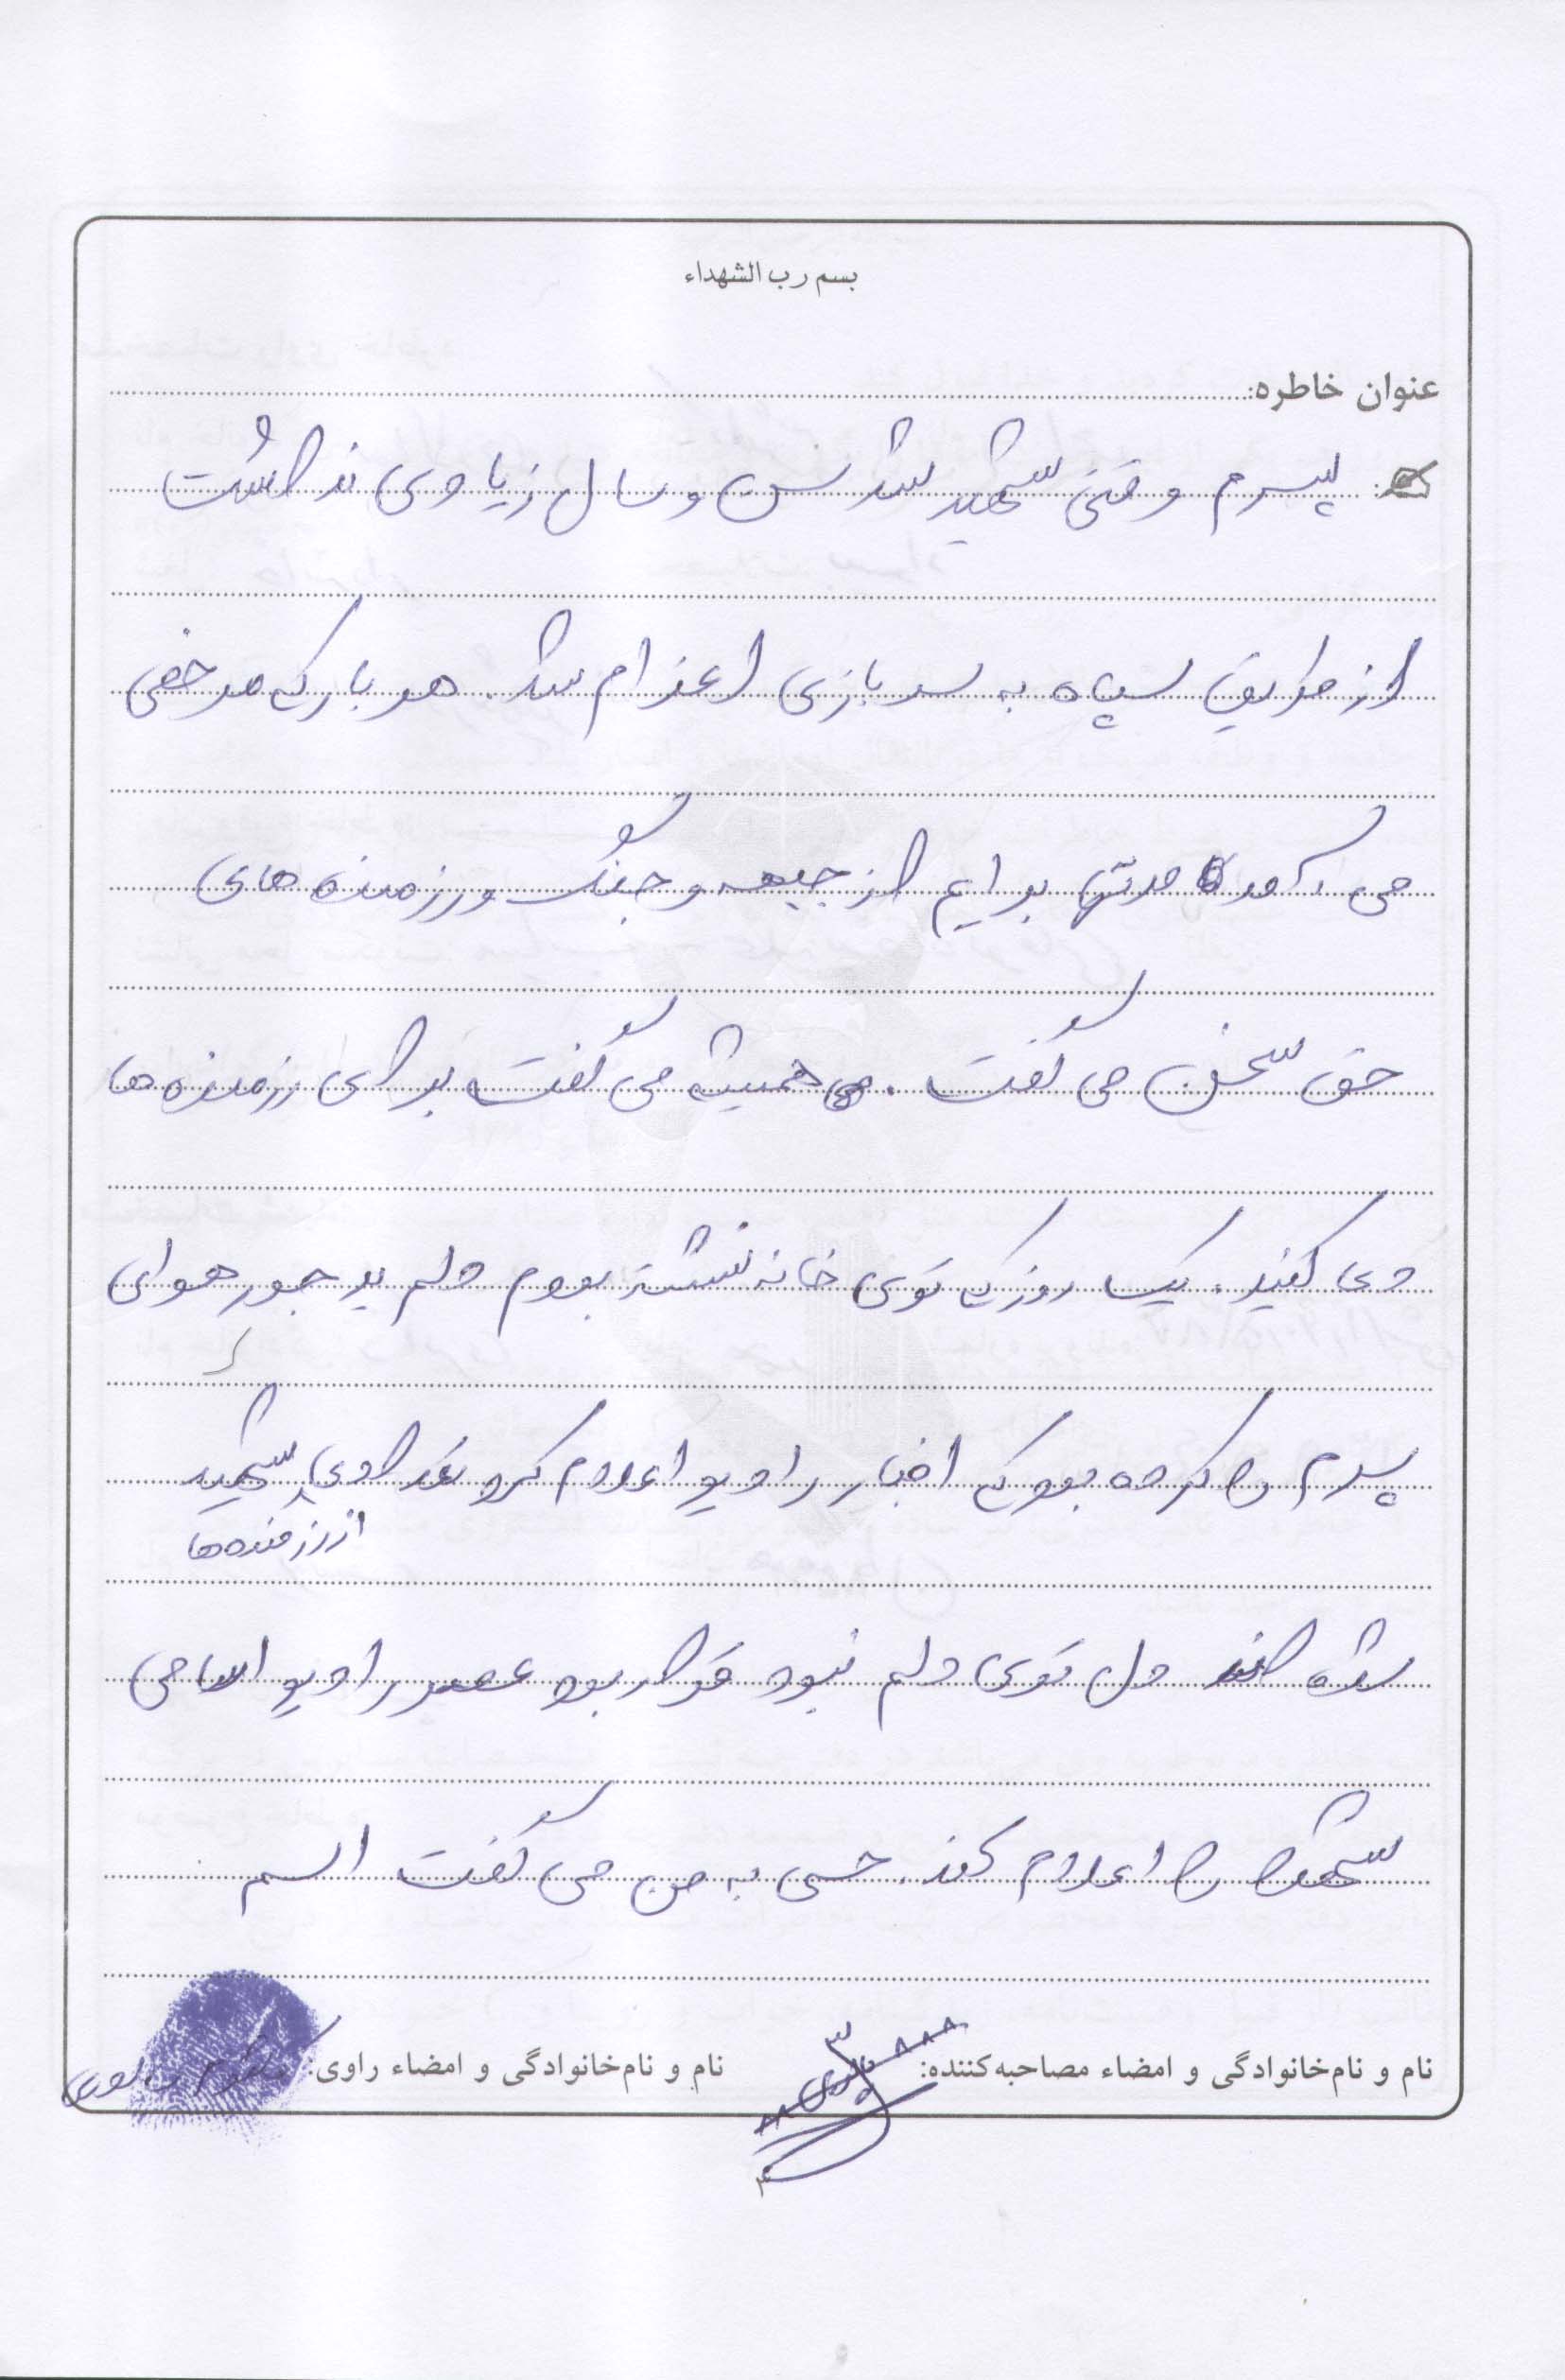 بسم رب الشهداء
عنوان خاطره:
پسرم وقتی شهید شد سن و سال زیادی نداشت
از طریق سپاه به سربازی اعزام شد. هر بار که مرخصی
می آمد مدتها برایم از جبهه و جنگ و رزمنده های
حق سخن می گفت. همیشه می گفت برای رزمنده ها
دعا کنید. یک روز که توی خانه نشسته بودم دلم بد جور هوای
پسرم را کرده بود که اخبار رادیو اعلام کرد تعدادی شهید
از رزمنده ها
شده اند دل توی دلم نبود قرار بود عصر رادیو اسامی
شهدا را اعلام کند. حسی به من می گفت اسم
نام و نام‌خانوادگی و امضاء مصاحبه‌کننده:
نام و نام‌خانوادگی و امضاء راوی: